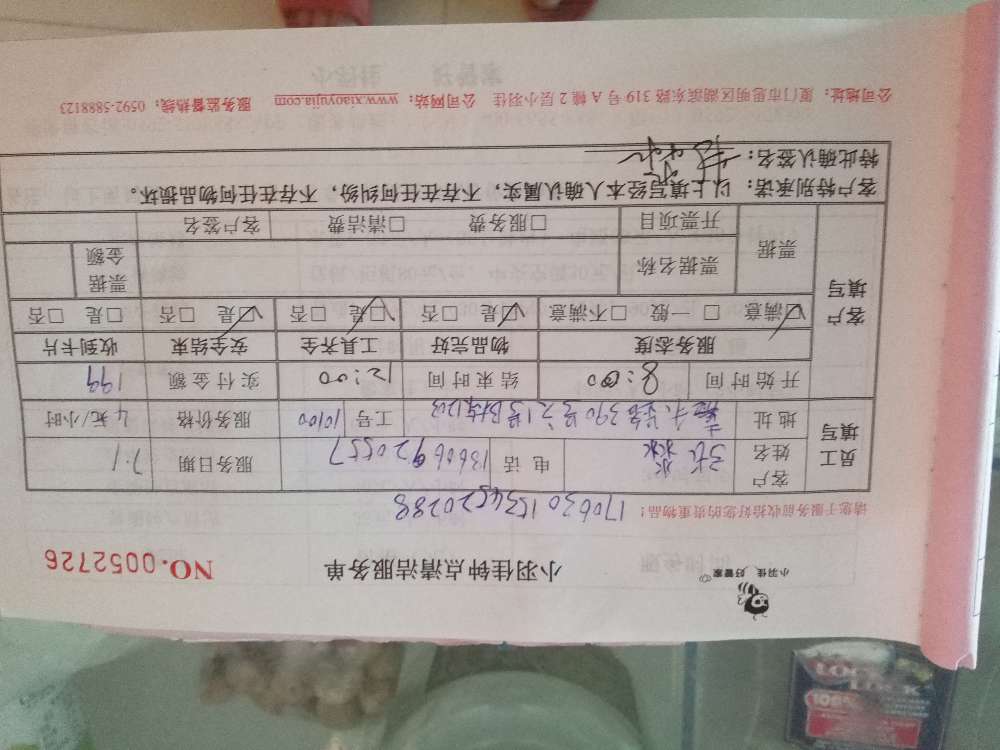 小羽佳 好管家
小羽佳钟点清洁服务单
NO.0052726
请您于服务前收拾好您的贵重物品!
1706301534520288
员工填写
客户姓名 电话 13606920557 服务日期 7.1
地址 工号 10100 服务价格 4 元/小时
开始时间 8:00 结束时间 12:00 实付金额 199
客户填写
服务态度 物品完好 工具齐全 安全结束 收到卡片
☑满意 □一般 □不满意 ☑是 □否 ☑是 □否 ☑是 □否 □是 □否
票据 票据名称 票据金额
开票项目 □服务费 □清洁费 客户签名
客户特别承诺:以上填写经本人确认属实,不存在任何纠纷,不存在任何物品损坏。
特此确认签名:
公司地址:厦门市思明区湖滨东路 319 号 A 幢 2 层小羽佳 公司网站:www.xiaoyujia.com 服务监督热线:0592-5888123